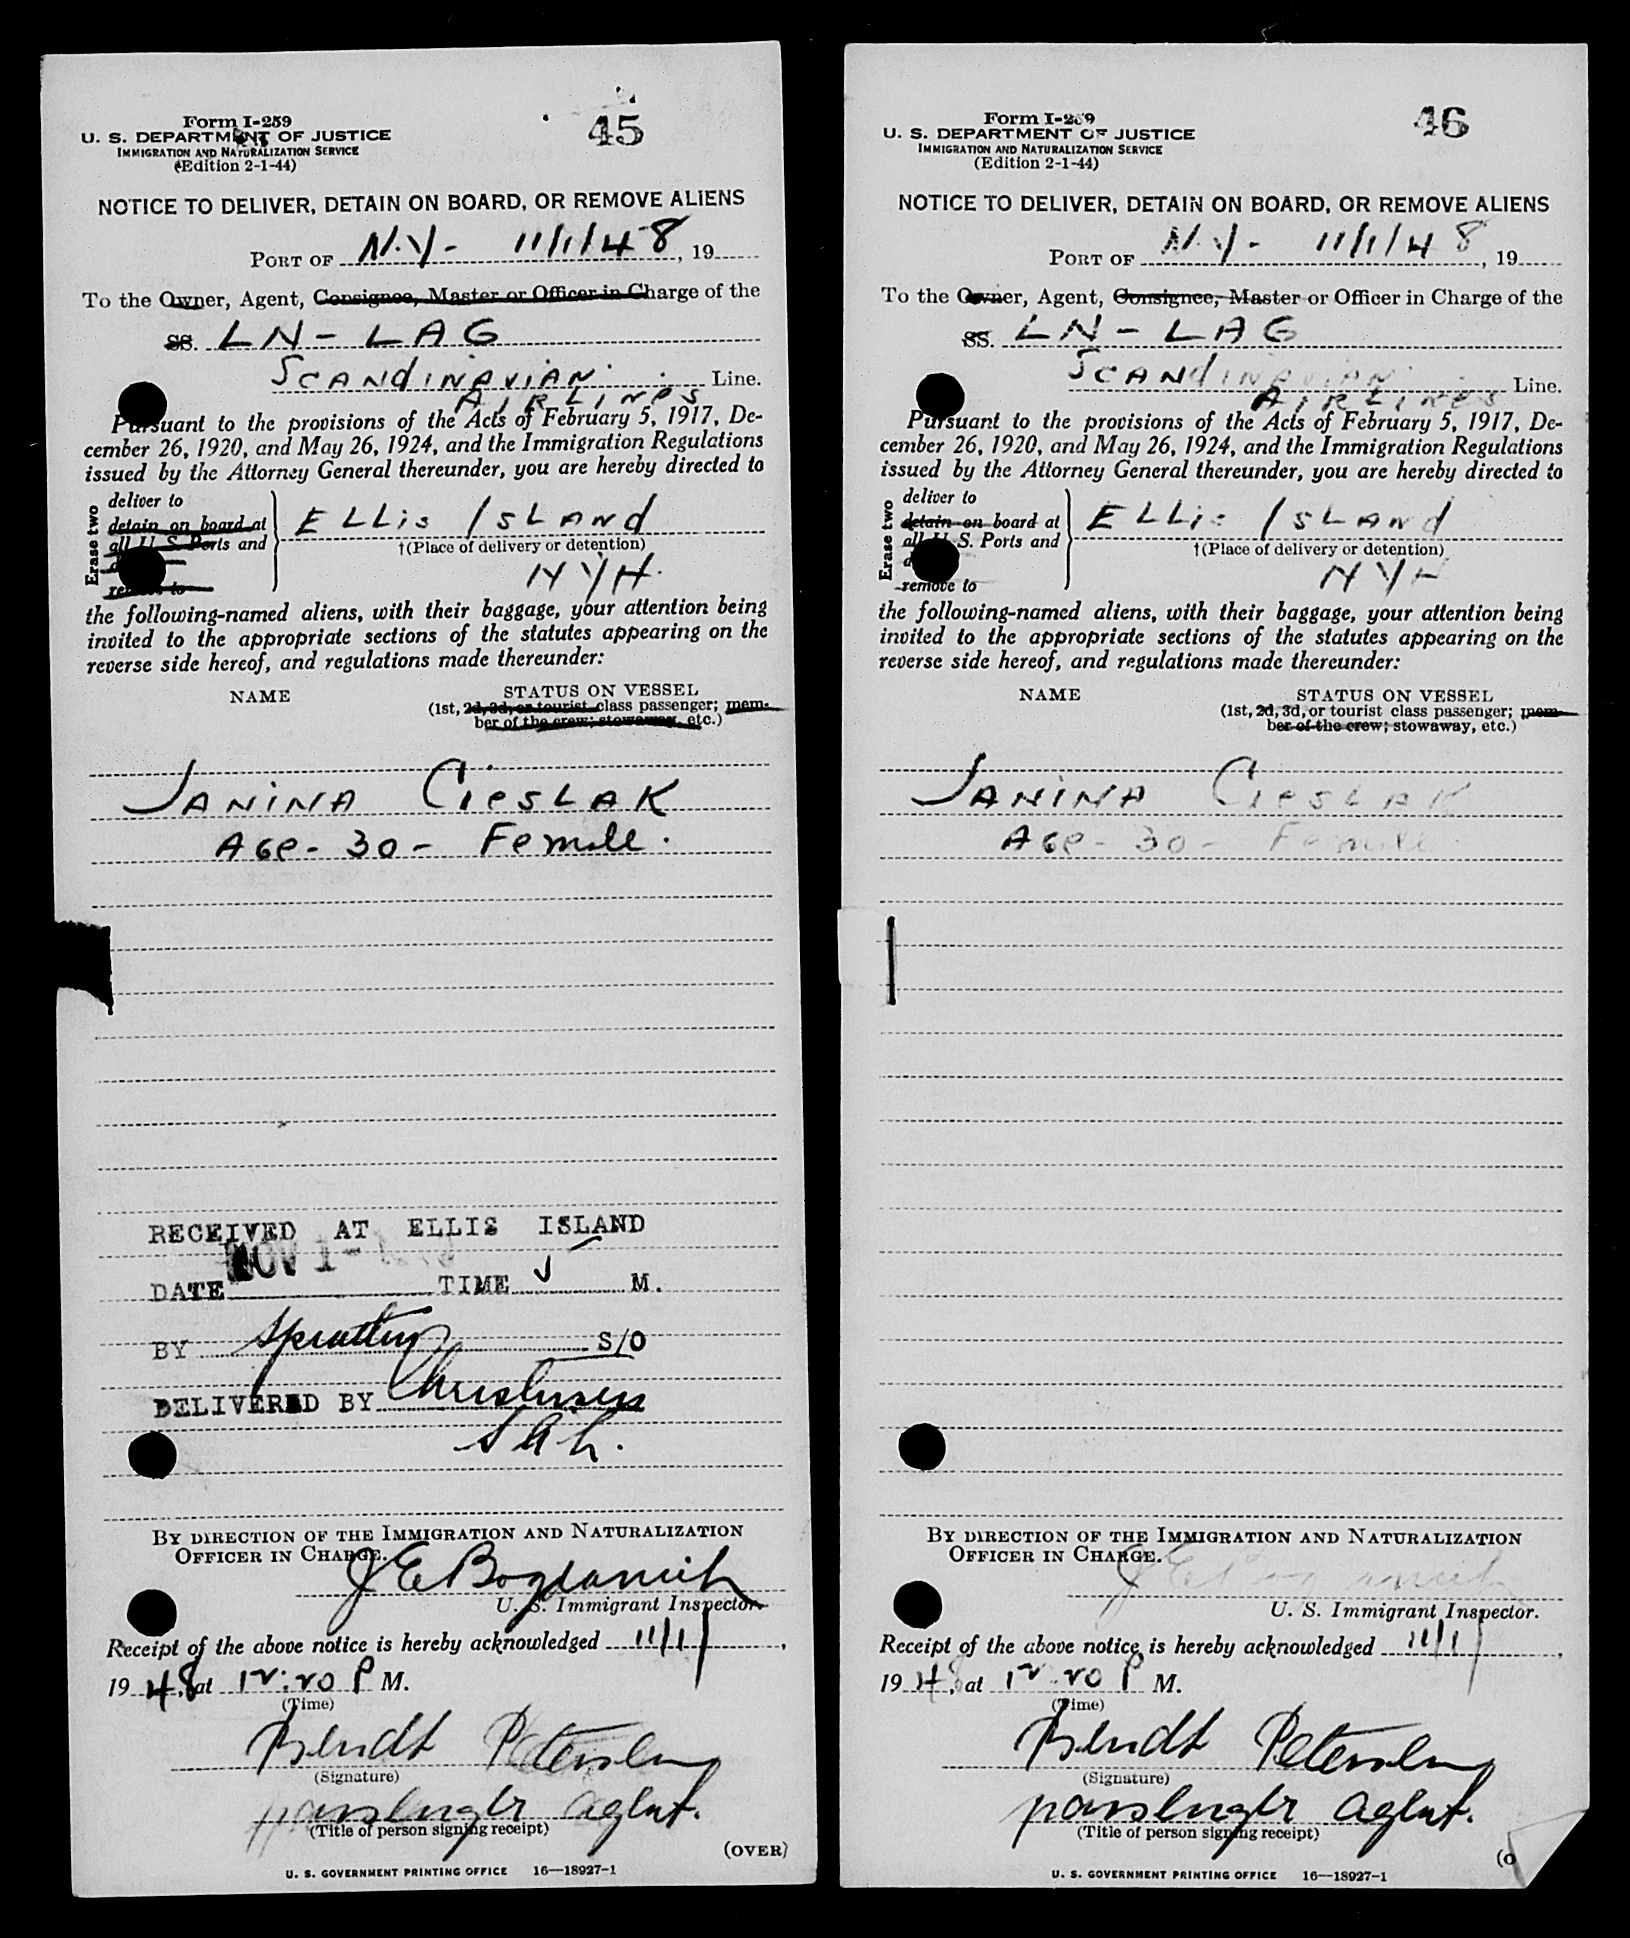 45
Form I-259
U. S. DEPARTMENT OF JUSTICE
IMMIGRATION AND NATURALIZATION SERVICE
(Edition 2-1-44)
NOTICE TO DELIVER, DETAIN ON BOARD, OR REMOVE ALIENS
PORT OF N.Y- 11/1/48, 19
To the Owner, Agent, Consignee, Master or Officer in Charge of the
SS. LN-LAG
SCANdINAVIAN Line.
AIRLINes
Pursuant to the provisions of the Acts of February 5, 1917, De-
cember 26, 1920, and May 26, 1924, and the Immigration Regulations
issued by the Attorney General thereunder, you are hereby directed to
Erase two
deliver to
detain on board at
all U. S. Ports and
remove to
ELLis IsLANd
†(Place of delivery or detention)
NYH.
the following-named aliens, with their baggage, your attention being
invited to the appropriate sections of the statutes appearing on the
reverse side hereof, and regulations made thereunder:
NAME
STATUS ON VESSEL
(1st, 2d, 3d, or tourist class passenger; mem-
ber of the crew; stowaway, etc.)
JANINA CieSLAK
AGe- 30- Female.
RECEIVED AT ELLIS ISLAND
DATE NOV 1- TIME M.
BY S/O
DELIVERED BY Christensen
BY DIRECTION OF THE IMMIGRATION AND NATURALIZATION
OFFICER IN CHARGE.
J E Bogdanich
U. S. Immigrant Inspector.
Receipt of the above notice is hereby acknowledged 11/1/,
1948, at 12:20 P M.
(Time)
Bendt Petersen
(Signature)
passenger agent.
(Title of person signing receipt)
(OVER)
U. S. GOVERNMENT PRINTING OFFICE 16—18927-1
46
Form I-259
U. S. DEPARTMENT OF JUSTICE
IMMIGRATION AND NATURALIZATION SERVICE
(Edition 2-1-44)
NOTICE TO DELIVER, DETAIN ON BOARD, OR REMOVE ALIENS
PORT OF N.Y- 11/1/48, 19
To the Owner, Agent, Consignee, Master or Officer in Charge of the
SS. LN-LAG
SCANdINAVIAN Line.
AIRLINes
Pursuant to the provisions of the Acts of February 5, 1917, De-
cember 26, 1920, and May 26, 1924, and the Immigration Regulations
issued by the Attorney General thereunder, you are hereby directed to
Erase two
deliver to
detain on board at
all U. S. Ports and
remove to
ELLis IsLANd
†(Place of delivery or detention)
NYH
the following-named aliens, with their baggage, your attention being
invited to the appropriate sections of the statutes appearing on the
reverse side hereof, and regulations made thereunder:
NAME
STATUS ON VESSEL
(1st, 2d, 3d, or tourist class passenger; mem-
ber of the crew; stowaway, etc.)
JANINA CieSLAK
AGe- 30- Female.
BY DIRECTION OF THE IMMIGRATION AND NATURALIZATION
OFFICER IN CHARGE.
J E Bogdanich
U. S. Immigrant Inspector.
Receipt of the above notice is hereby acknowledged 11/1/,
1948, at 12:20 P M.
(Time)
Bendt Petersen
(Signature)
passenger agent.
(Title of person signing receipt)
U. S. GOVERNMENT PRINTING OFFICE 16—18927-1